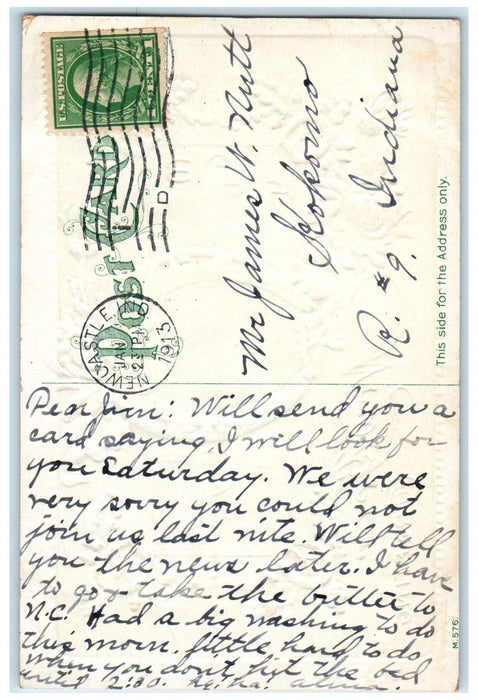 U.S. POSTAGE
1 CENT 1
Post CARD
NEWCASTLE, IND.
JAN
23
1913
D
Mr James W. Nutt
Kokomo
R. #9. Indiana
This side for the Address only.
Dear Jim: Will send you a
card saying, I will look for
you Saturday. We were
very sorry you could not
join us last nite. Will tell
you the news later. I have
to go & take the butter to
N.C. Had a big washing to do
this morn. little hard to do
when you don't hit the bed
until 2:30. Ha. ha.
M. 576